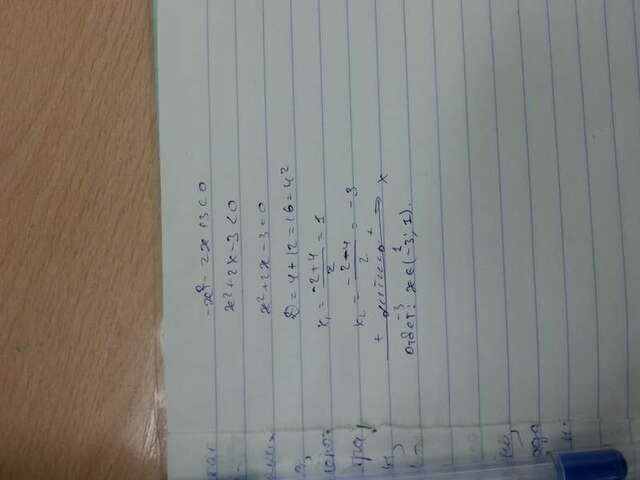 -x² - 2x + 3 < 0
x² + 2x - 3 < 0
x² + 2x - 3 = 0
D = 4 + 12 = 16 = 4²
x₁ = (-2+4)/2 = 1
x₂ = (-2-4)/2 = -3
+ + x
-3 1
Ответ: x ∈ (-3; 1).